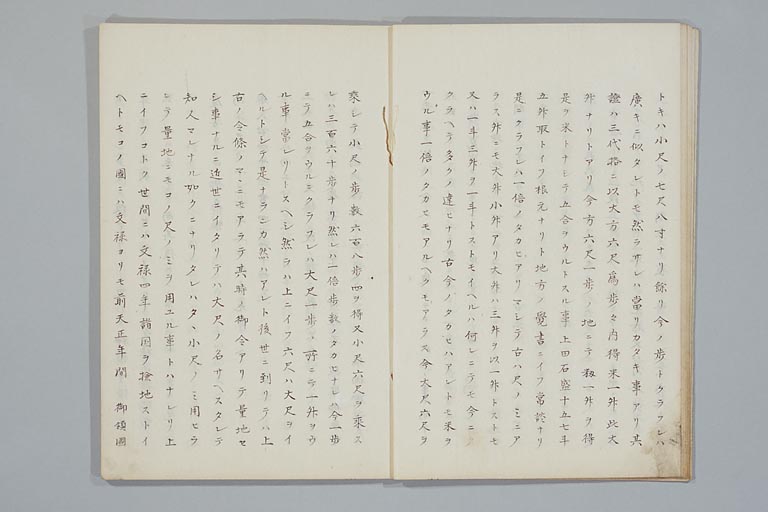 トキハ小尺ノ七尺八寸ナリ餘リ今ノ歩トクラフレハ
廣キニ似タレトモ然ラサレハ當リカタキ事アリ其
證ハ三代格ニ以大方六尺為歩歩内得米一升此大
升ナリトアリ今方六尺一歩ノ地ニテ籾一升ヲ得
是ヲ米トナシテ五合ヲウルトスル事上田石盛十五七斗
五升取トイフ根元ナリト地方ノ覺書ニイフ常談ナリ
是ニクラフレハ一倍ノタカヒアリマシテ古ハ尺ノミニア
ラス升ニモ大升小升アリ大升ハ三升ヲ以一升トストモ
又ハ一斗三升ヲ一斗トストモイヘルハ何レニテモ今ニ
クラヘテ多クノ違ヒナリ古今ノタカヒハアレトモ米ヲ
ウル事一倍ノタカヒモアルヘクモアラス今大尺六尺ヲ
乗シテ小尺ノ歩数六百八歩四ヲ得又小尺六尺ヲ乗ス
レハ三百六十歩ナリ然レハ一倍歩数ノタカヒナレハ今一歩
ニテ五合ヲウルニクラフレハ大尺一歩ノ所ニテ一升ヲウ
ル事當レリトスヘシ然ラハ上ニイフ六尺ハ大尺ヲイ
ヘルトシテ是ナランカ然ハアレト後世ニ到リテハ上
古ノ令條ノマヽニモアラテ其時ノ御令アリテ量地セ
シ事ナルニ近世ニイタリテハ大尺ノ名サヘスタレテ
知人マレナル如クニナリタレハタヽ小尺ノミ用ヒラ
レテ量地ニモコノ尺ノミヲ用ユル事トハナレリ上
ニイフコトク世間ニハ文禄四年諸国ヲ撿地ストイ
ヘトモコノ國ニハ文禄ヨリモ前天正年間 御領國